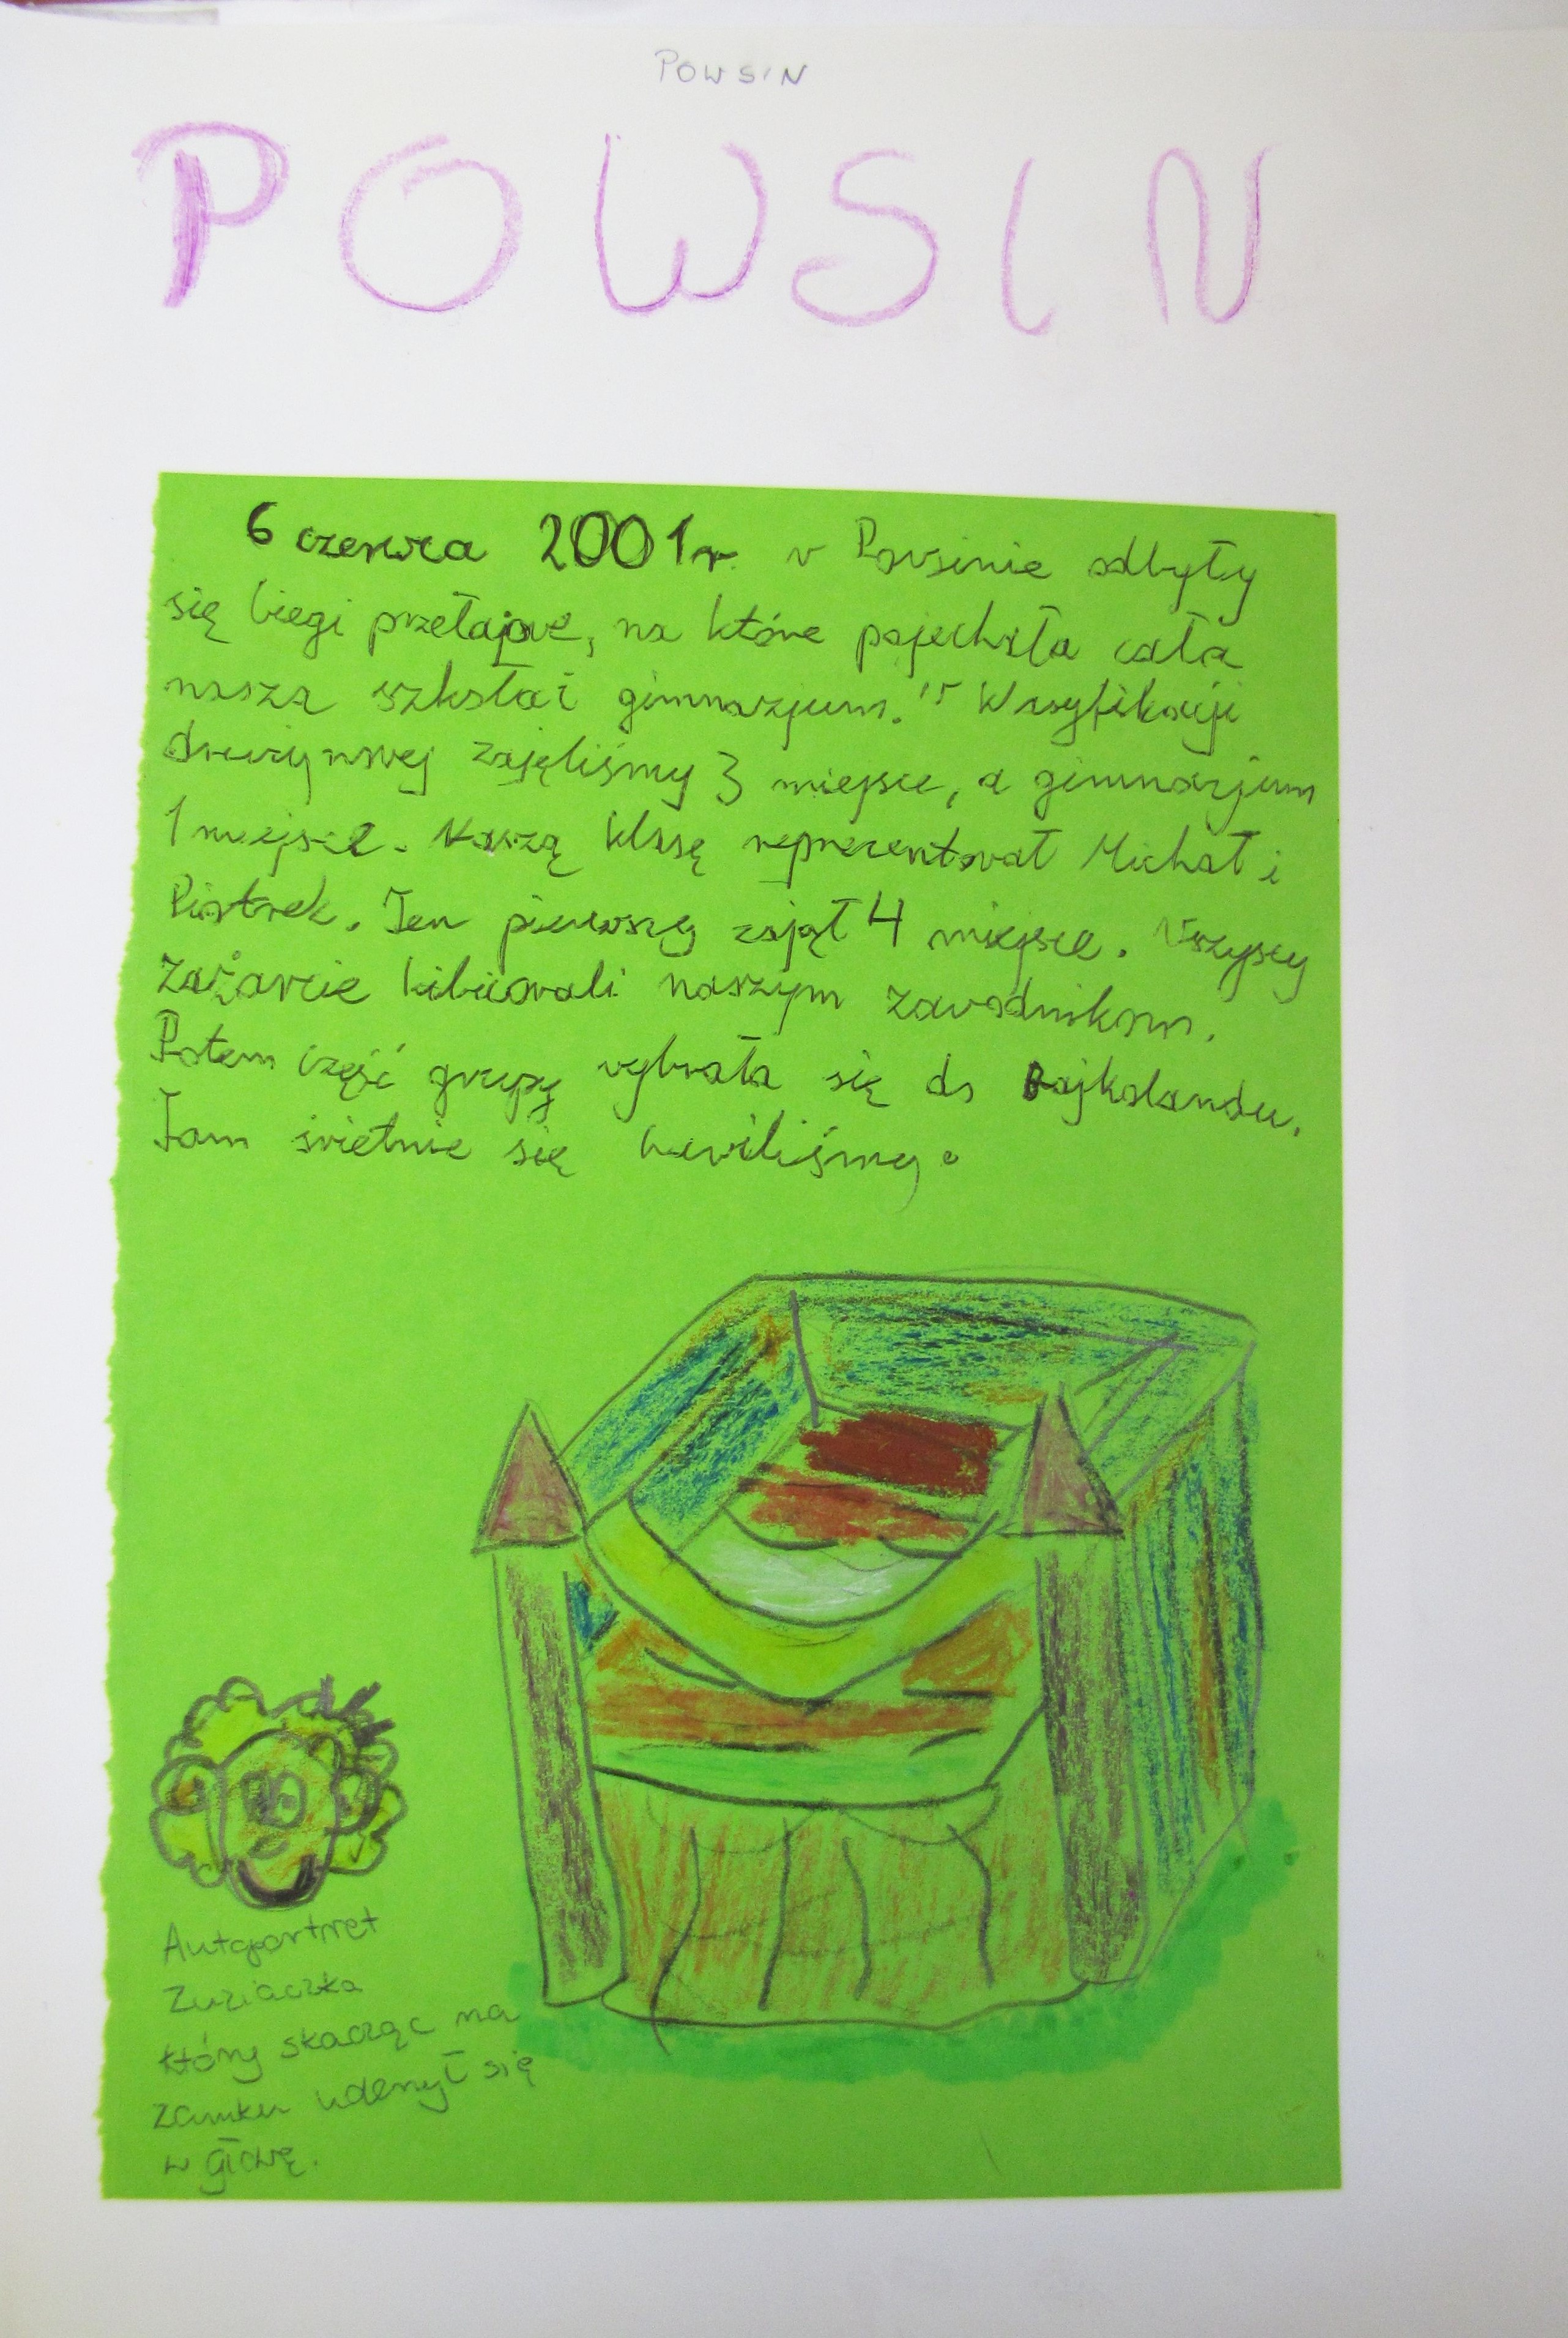 POWSIN
POWSIN
6 czerwca 2001r. w Powsinie odbyły
się biegi przełajowe, na które pojechała cała
nasza szkoła i gimnazjum. W
drużynowej zajęliśmy 3 miejsce, a gimnazjum
1 miejsce. Naszą klasę reprezentował Michał i
Piotrek. Ten pierwszy zajął 4 miejsce. Wszyscy
zażarcie kibicowali naszym zawodnikom.
Potem część grupy wybrała się do Bajkolandu.
Tam świetnie się bawiliśmy.
Autoportret
Zuziaczka
który skacząc na
zamku uderzył się
w głowę.